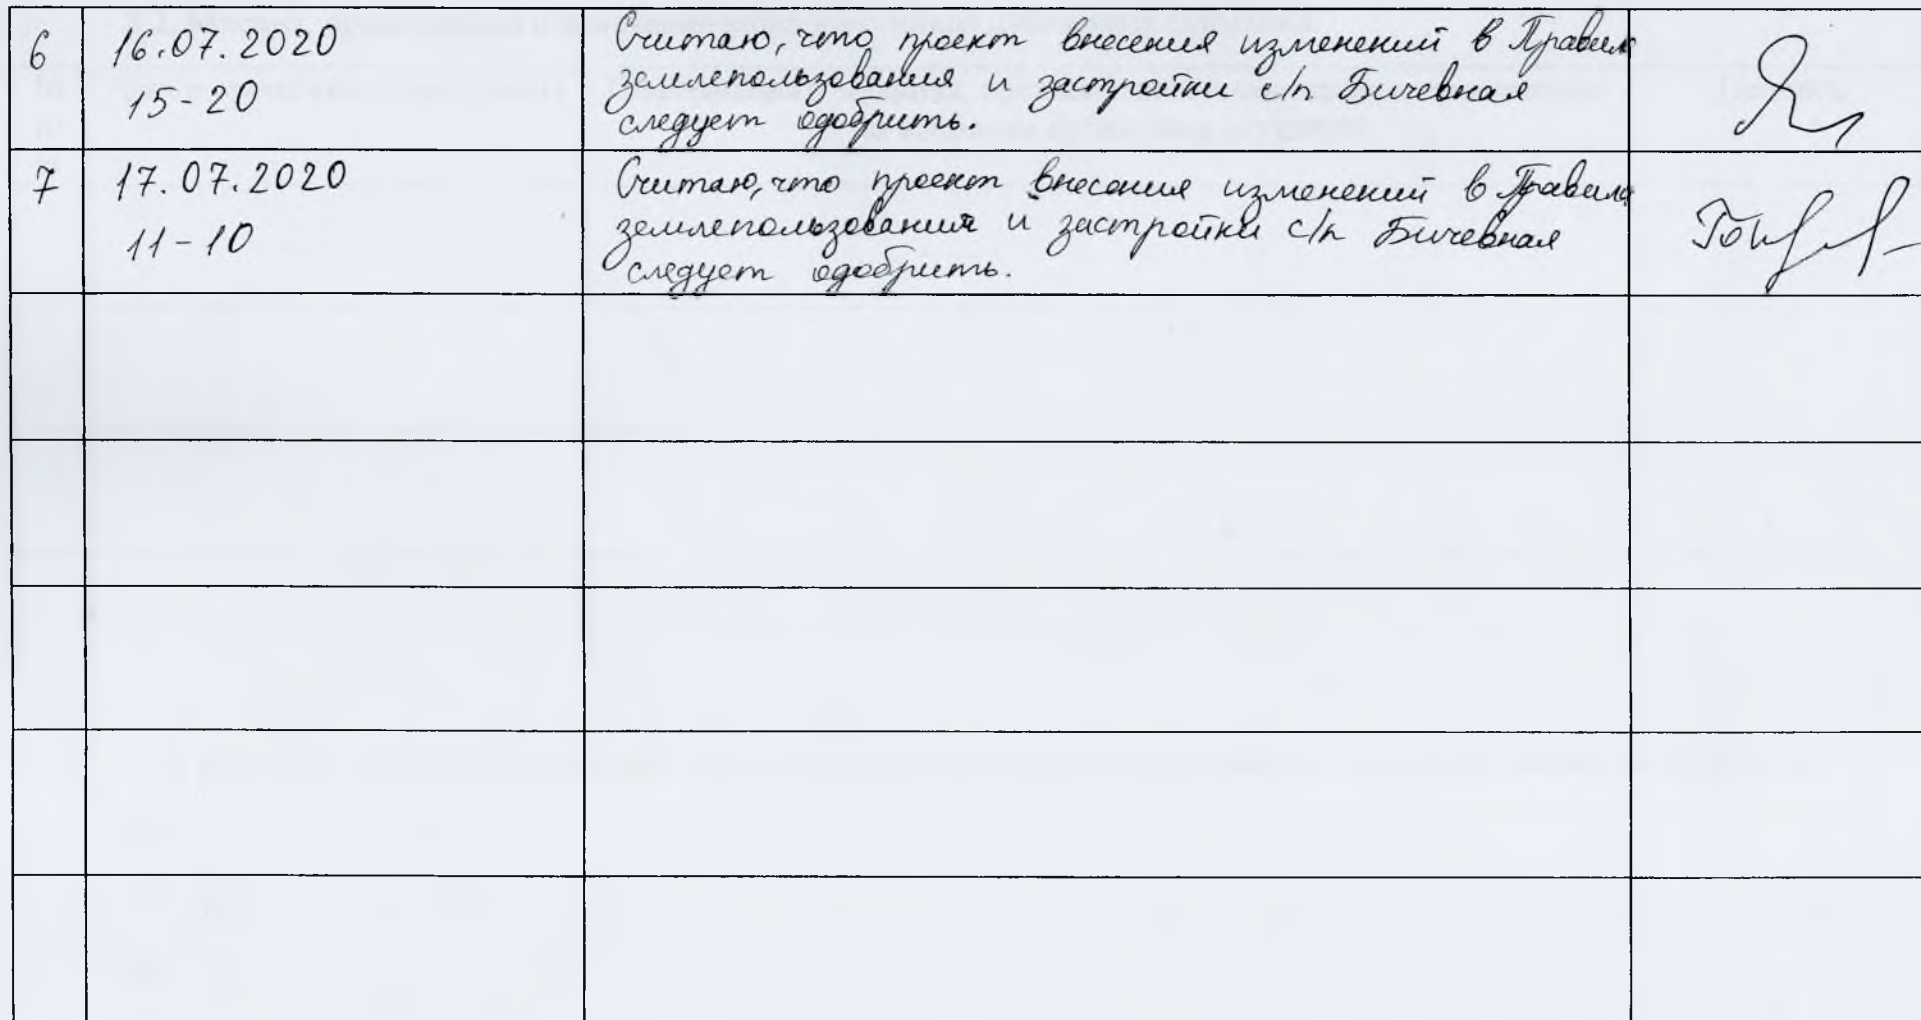 6 16.07.2020 Считаю, что проект внесения изменений в Правила
15-20 землепользования и застройки с/п Бичевная
следует одобрить.
7 17.07.2020 Считаю, что проект внесения изменений в Правила
11-10 землепользования и застройки с/п Бичевная
следует одобрить.